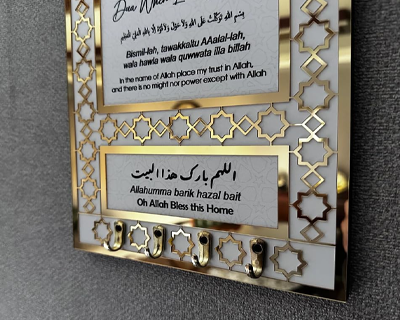 Dua When
بسم الله توكلت على الله ولا حول ولا قوة إلا بالله
Bismil-lah, tawakkaltu AAalal-lah,
wala hawla wala quwwata illa billah
In the name of Allah place my trust in Allah,
and there is no might nor power except with Allah
اللهم بارك هذا البيت
Allahumma barik hazal bait
Oh Allah Bless this Home